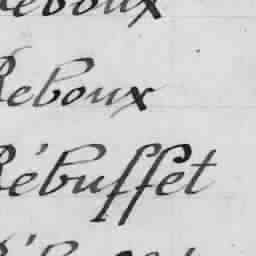 Reboux
Reboux
Rébuffet